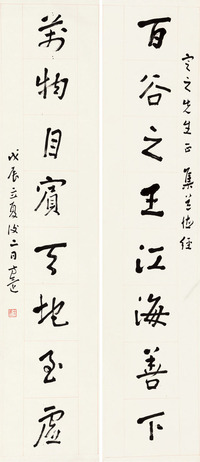 之先生正 集道德經
百谷之王江海善下
萬物自賓天地至虛
戊辰立夏後二日